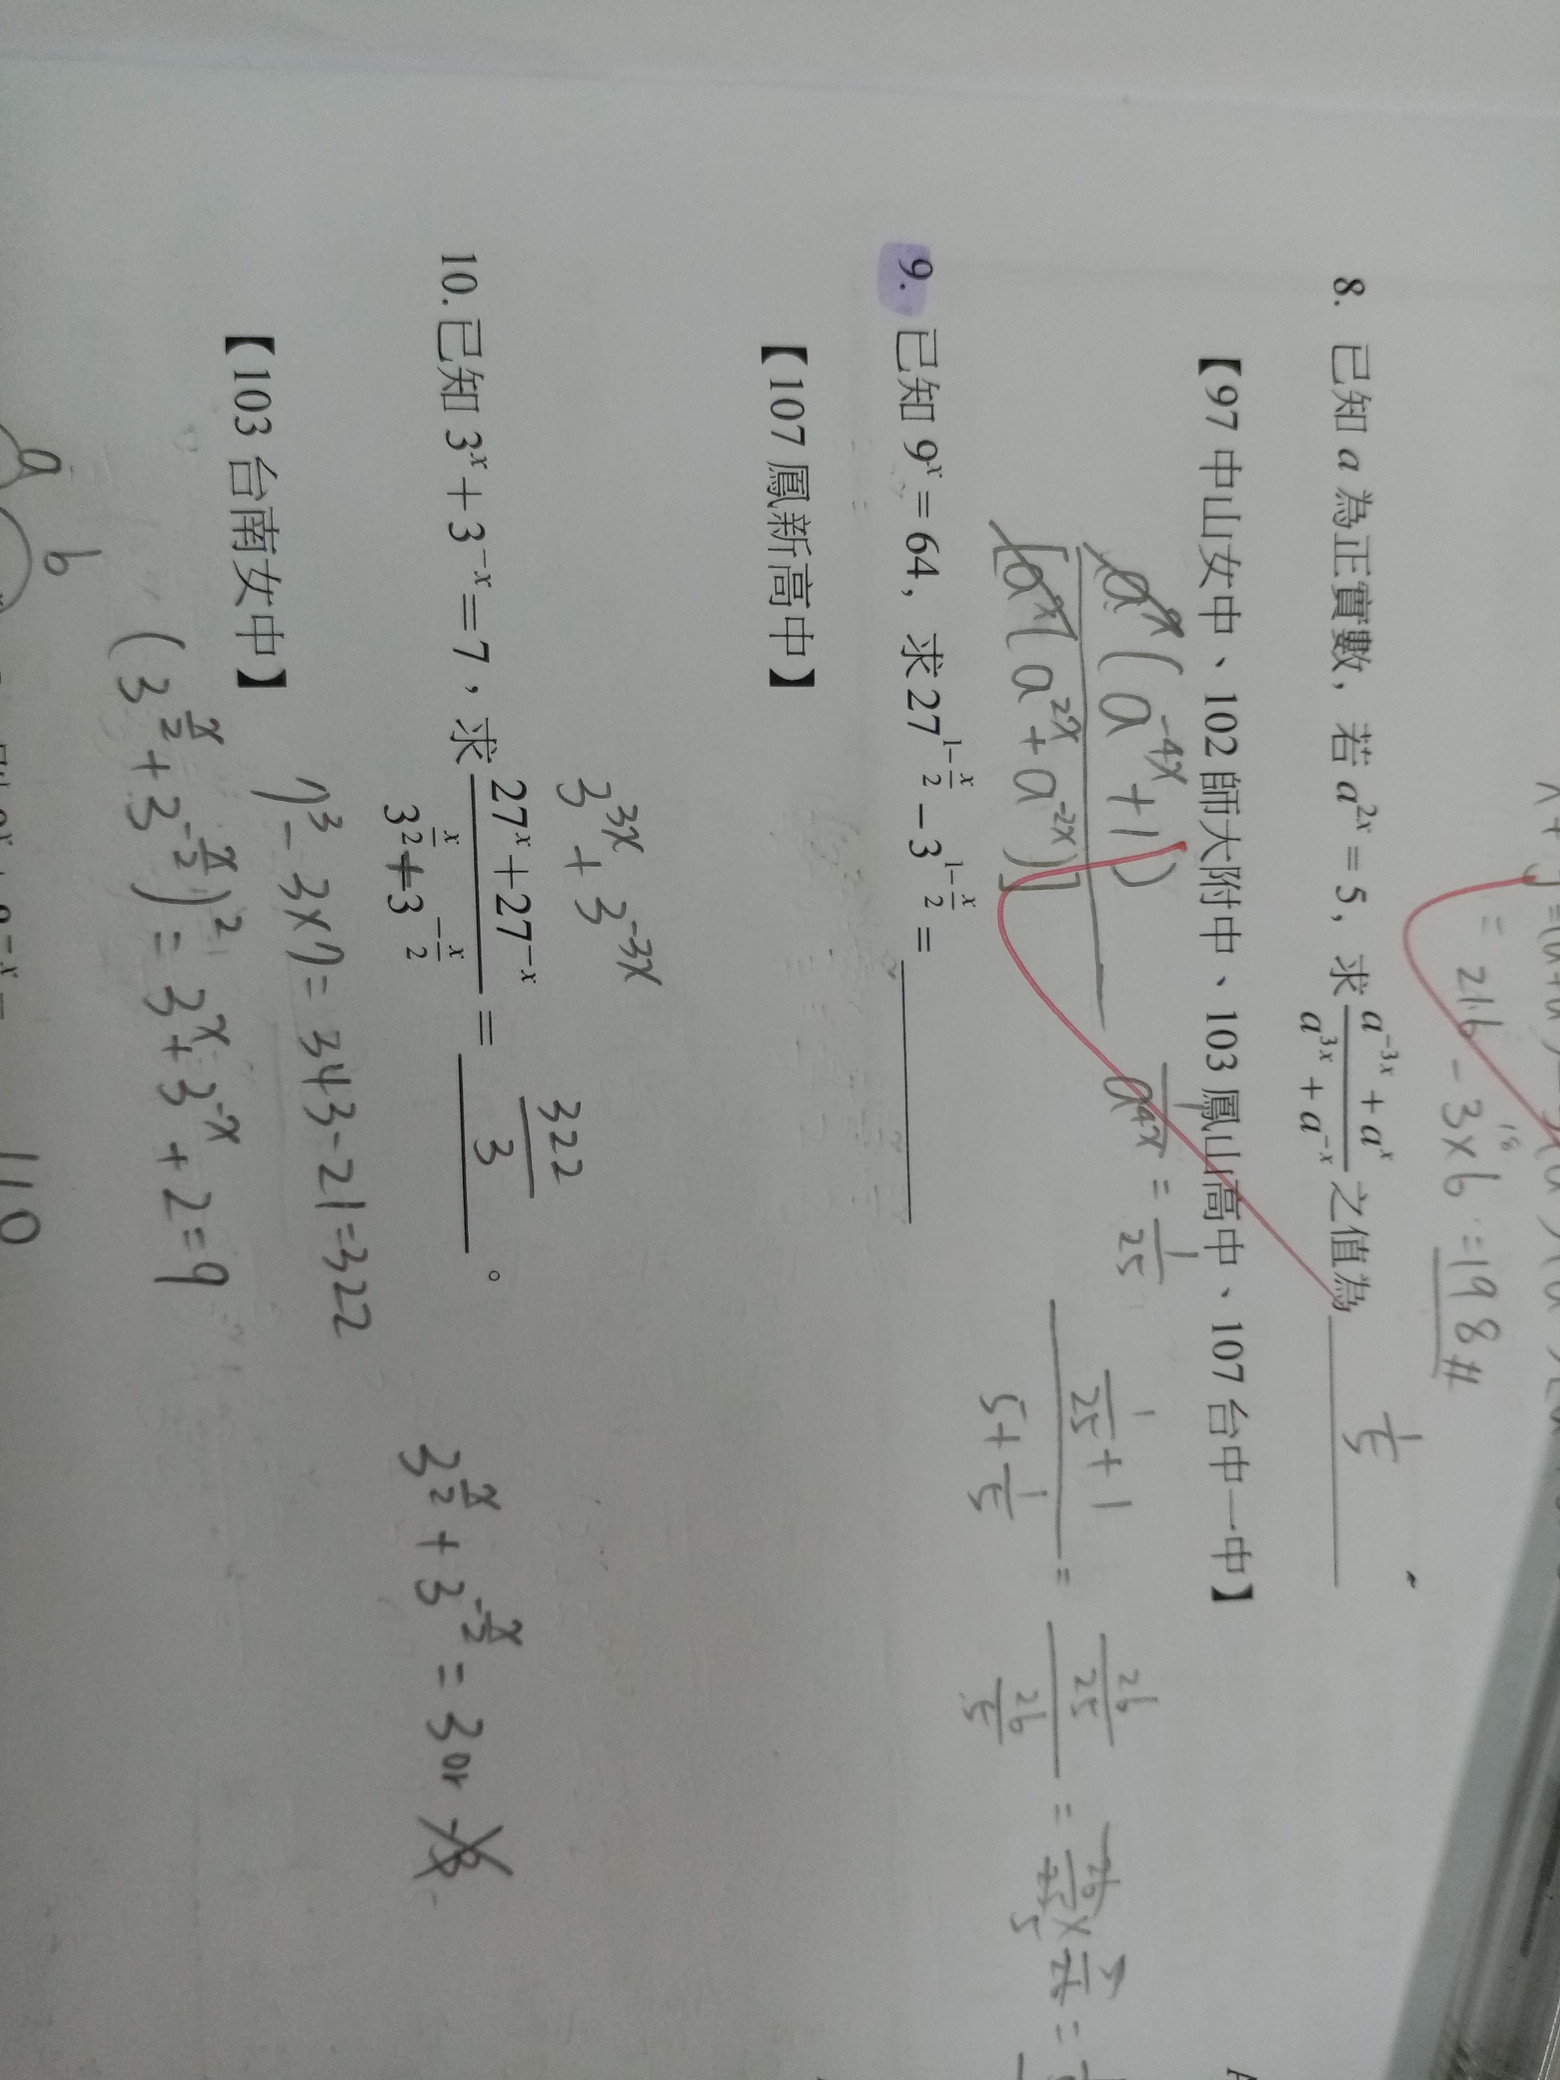 = 216 - 3×6 = 198#
8. 已知 a 為正實數，若 a^{2x} = 5，求 \frac{a^{-3x} + a^{x}}{a^{3x} + a^{-x}} 之值為 \frac{1}{5}
【97 中山女中、102 師大附中、103 鳳山高中、107 台中一中】
\frac{a^{x}(a^{-4x}+1)}{[a^{x}(a^{2x}+a^{-2x})]}
\frac{1}{a^{4x}} = \frac{1}{25}
\frac{\frac{1}{25}+1}{5+\frac{1}{5}} = \frac{\frac{26}{25}}{\frac{26}{5}} = \frac{26}{25} × \frac{5}{26} =
9. 已知 9^{x} = 64，求 27^{1-\frac{x}{2}} − 3^{1-\frac{x}{2}} =
【107 鳳新高中】
3^{3x} + 3^{-3x}
10. 已知 3^{x} + 3^{-x} = 7，求 \frac{27^{x} + 27^{-x}}{3^{\frac{x}{2}} + 3^{-\frac{x}{2}}} = \frac{322}{3} 。
3^{\frac{x}{2}} + 3^{-\frac{x}{2}} = 3 or -3
【103 台南女中】
7^{3} - 3×7 = 343 - 21 = 322
(3^{\frac{x}{2}} + 3^{-\frac{x}{2}})^{2} = 3^{x} + 3^{-x} + 2 = 9
a b
110